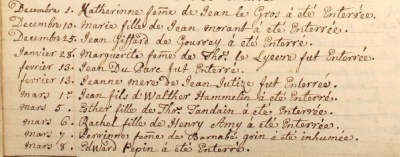 Decembre 1. Katherinne feme de Jean le Gros à été Enterrée.
Decembre 10. Marie fille de Jean morant à été Enterrée.
Decembre 25. Jean Giffard de Gourrey à été Enterré.
Janvier 28. Marguerite feme de Thos. le Lyevre fut Enterrée.
fevrier 13. Jean Du Parc fut Enterré.
fevrier 13. Jeanne mere de Jean Jutize fut Enterrée.
mars 1. Jean fils d'Walther Hammelin à été Enterré.
mars 5. Esther fille de Thos. Tandain à été Enterrée.
mars 6. Rachel fille de Henry Amy à été Enterrée.
mars 7. Perrinne feme de Barnabé gorin à été inhumée.
mars 8. Edward Pepin à été Enterré.